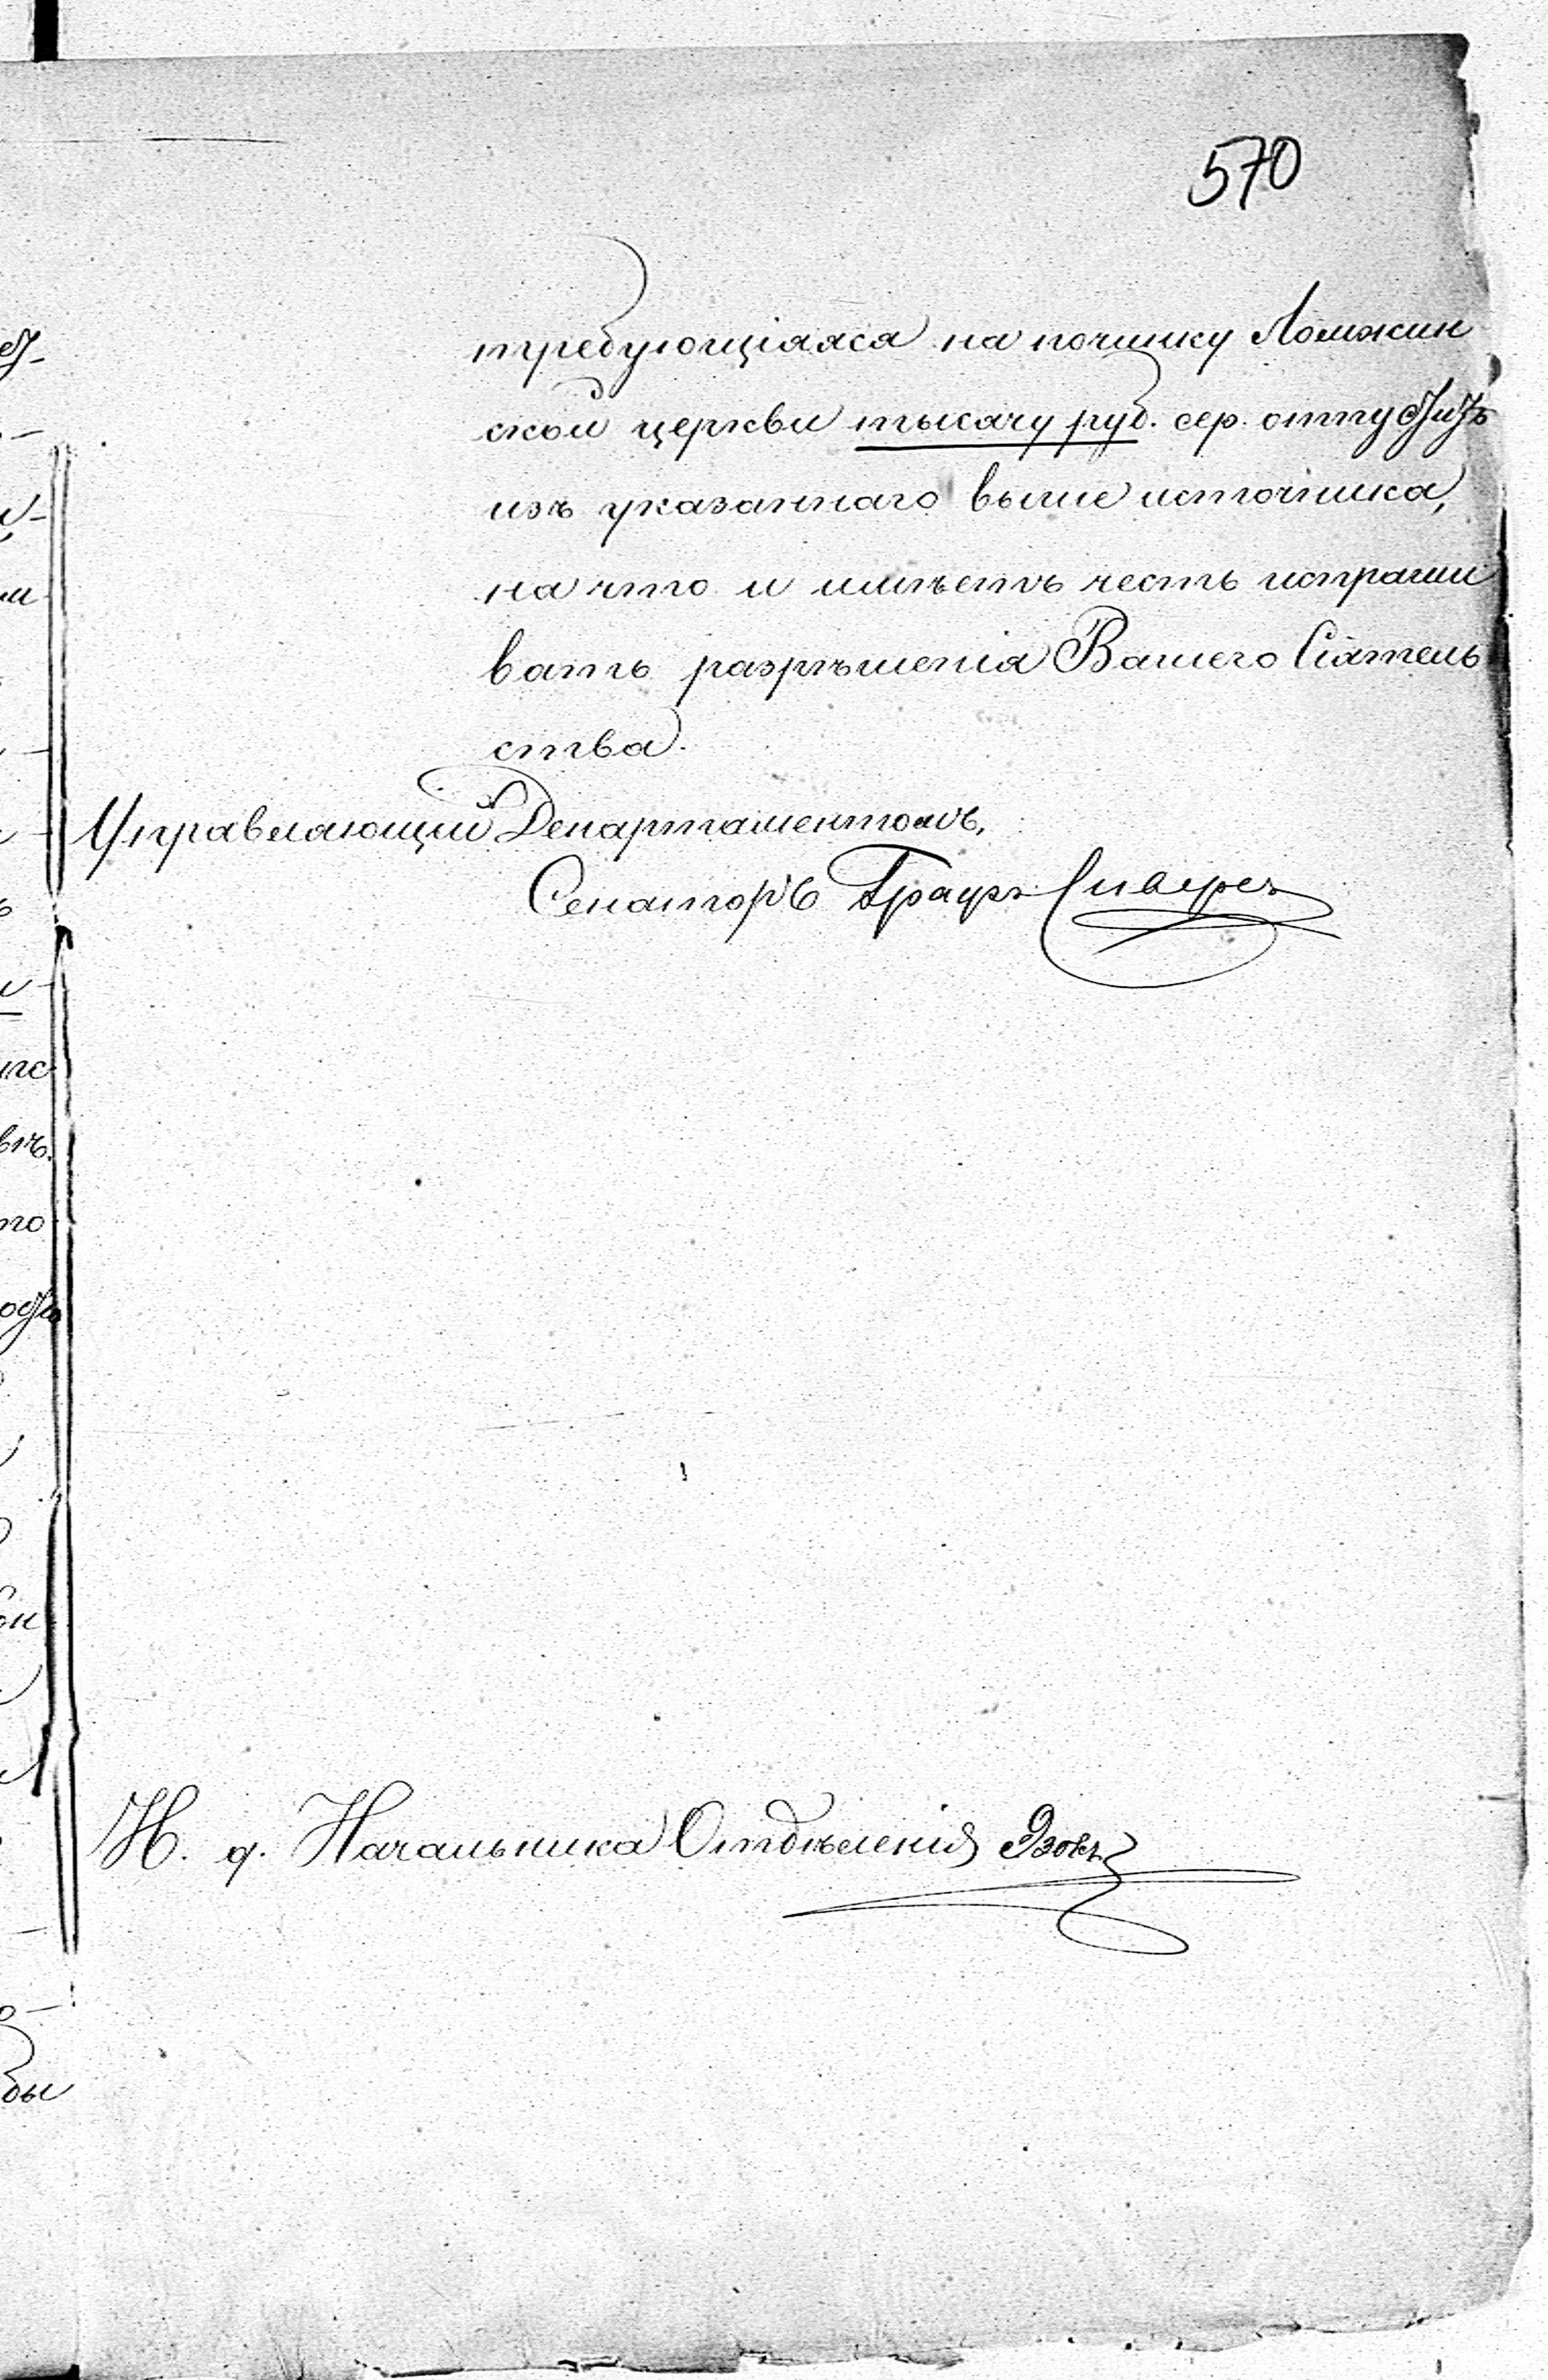 570
требующіяся на починку Ломжин
ской церкви тысячу руб. сер. отпустить
изъ указаннаго выше источника,
на что и имѣетъ честь испраши
вать разрѣшенія Вашего Сіятель
ства.
Управляющій Департаментомъ,
Сенаторъ Графъ Сиверсъ
И. д. Начальника Отдѣленія Эзовъ